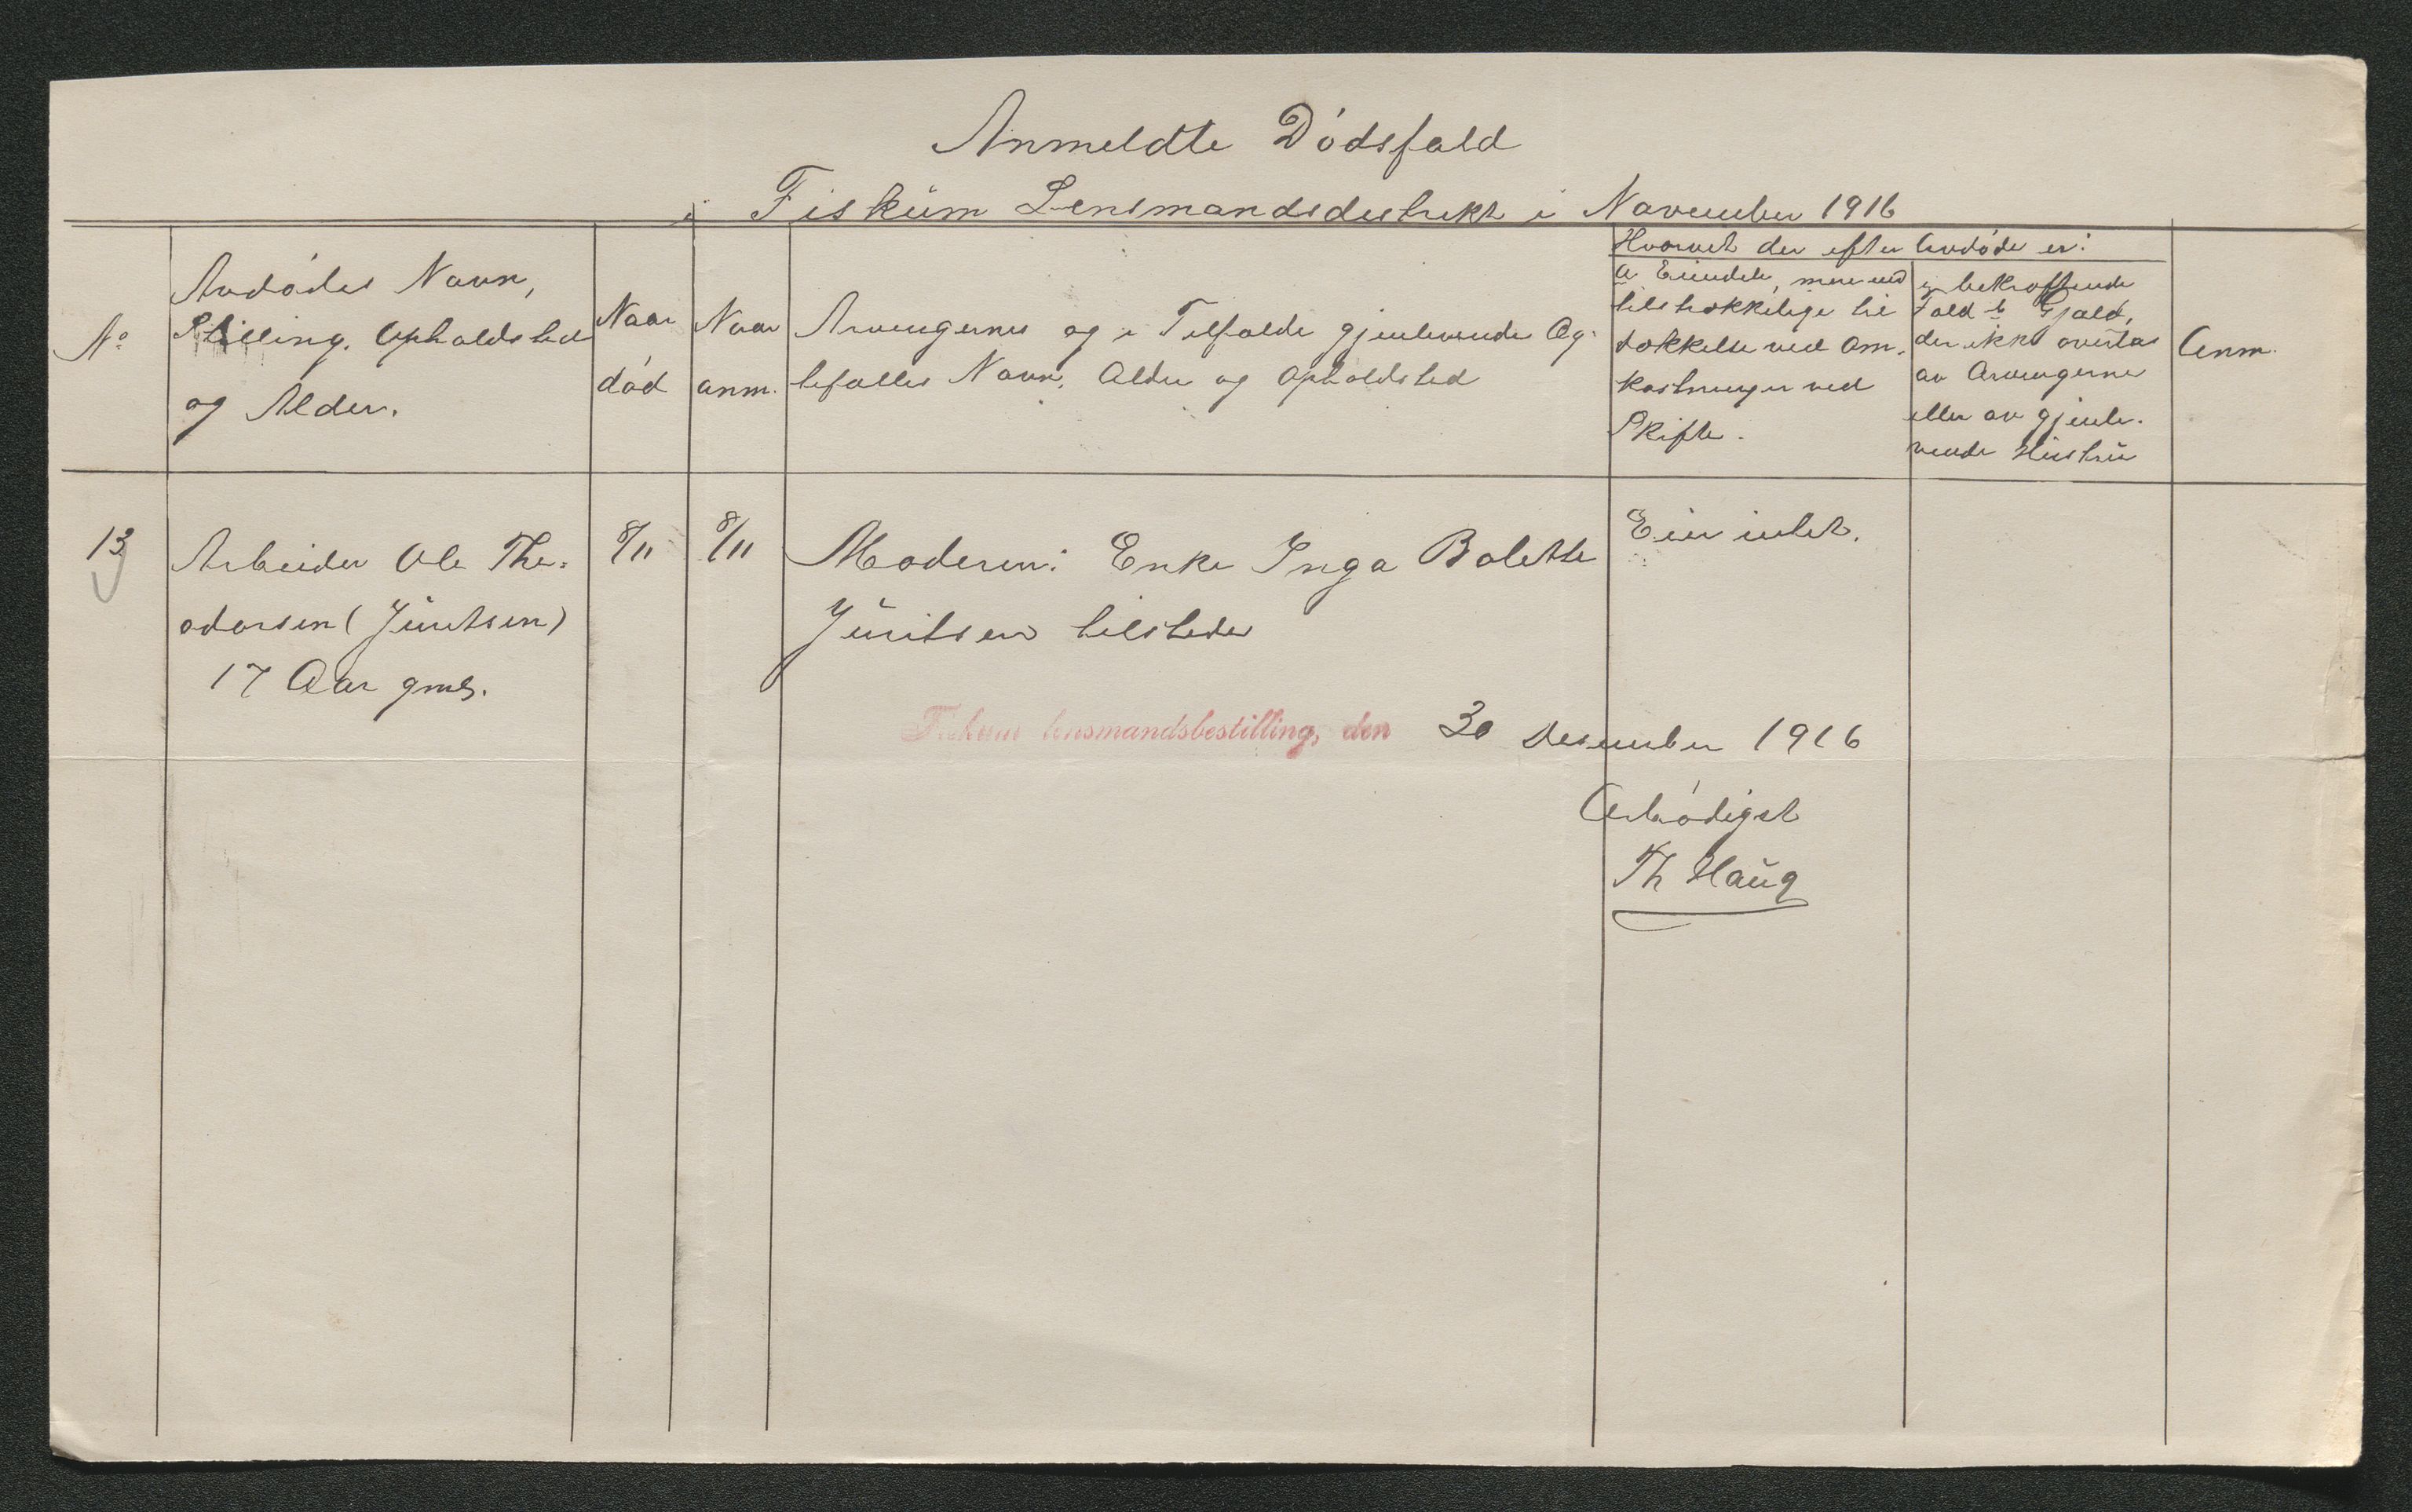 Anmeldte Dødsfald
i Fiskum Lensmandsdistrikt i November 1916
No
Avdødes Navn,
Stilling, Opholdsted
og Alder.
Naar
død
Naar
anm.
Arvingernes og i Tilfælde gjenlevende Æg-
tefælles Navn, Alder og Opholdsted
Hvorvidt der efter Avdøde er:
a Eiendele, mere end
tilstrækkelige til
dækkelse ved Om-
kostninger ved
Skifte.
i bekræftende
Fald b Gjæld,
der ikke overtas
av Arvingerne
eller av gjenle-
vende Hustru
Anm.
13
Arbeider Ole The-
odorsen (Juritsen)
17 Aar gml.
8/11
8/11
Moderen: Enke Inga Bolette
Juritsen tilstede
Eier intet.
Fiskum lensmandsbestilling, den 30 Desember 1916
Ærbødigst
Th Haug